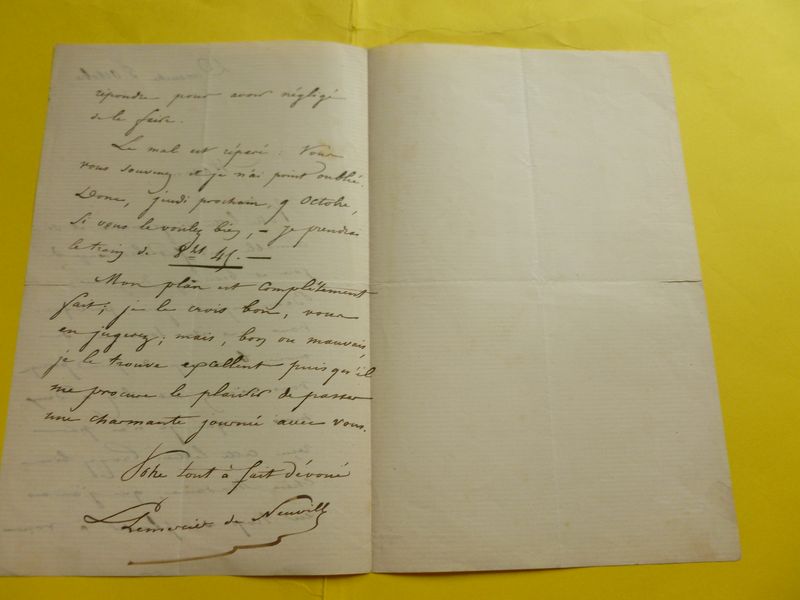 répondre pour avoir négligé
de le faire.
Le mal est réparé : Vous
vous souvenez et je n'ai point oublié.
Donc, jeudi prochain, 9 Octobre,
si vous le voulez bien, – je prendrai
le train de 8h 45. —
Mon plan est complètement
fait ; je le crois bon, vous
en jugerez ; mais, bon ou mauvais,
je le trouve excellent puisqu'il
me procure le plaisir de passer
une charmante journée avec vous.
Votre tout à fait dévoué
Lemercier de Neuville